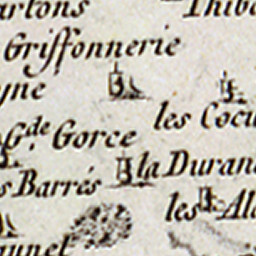 artons
Thiba
Griffonnerie
yne
les Cocu
G.de Gorce
la Duran
s Barrés
les Al
aunet